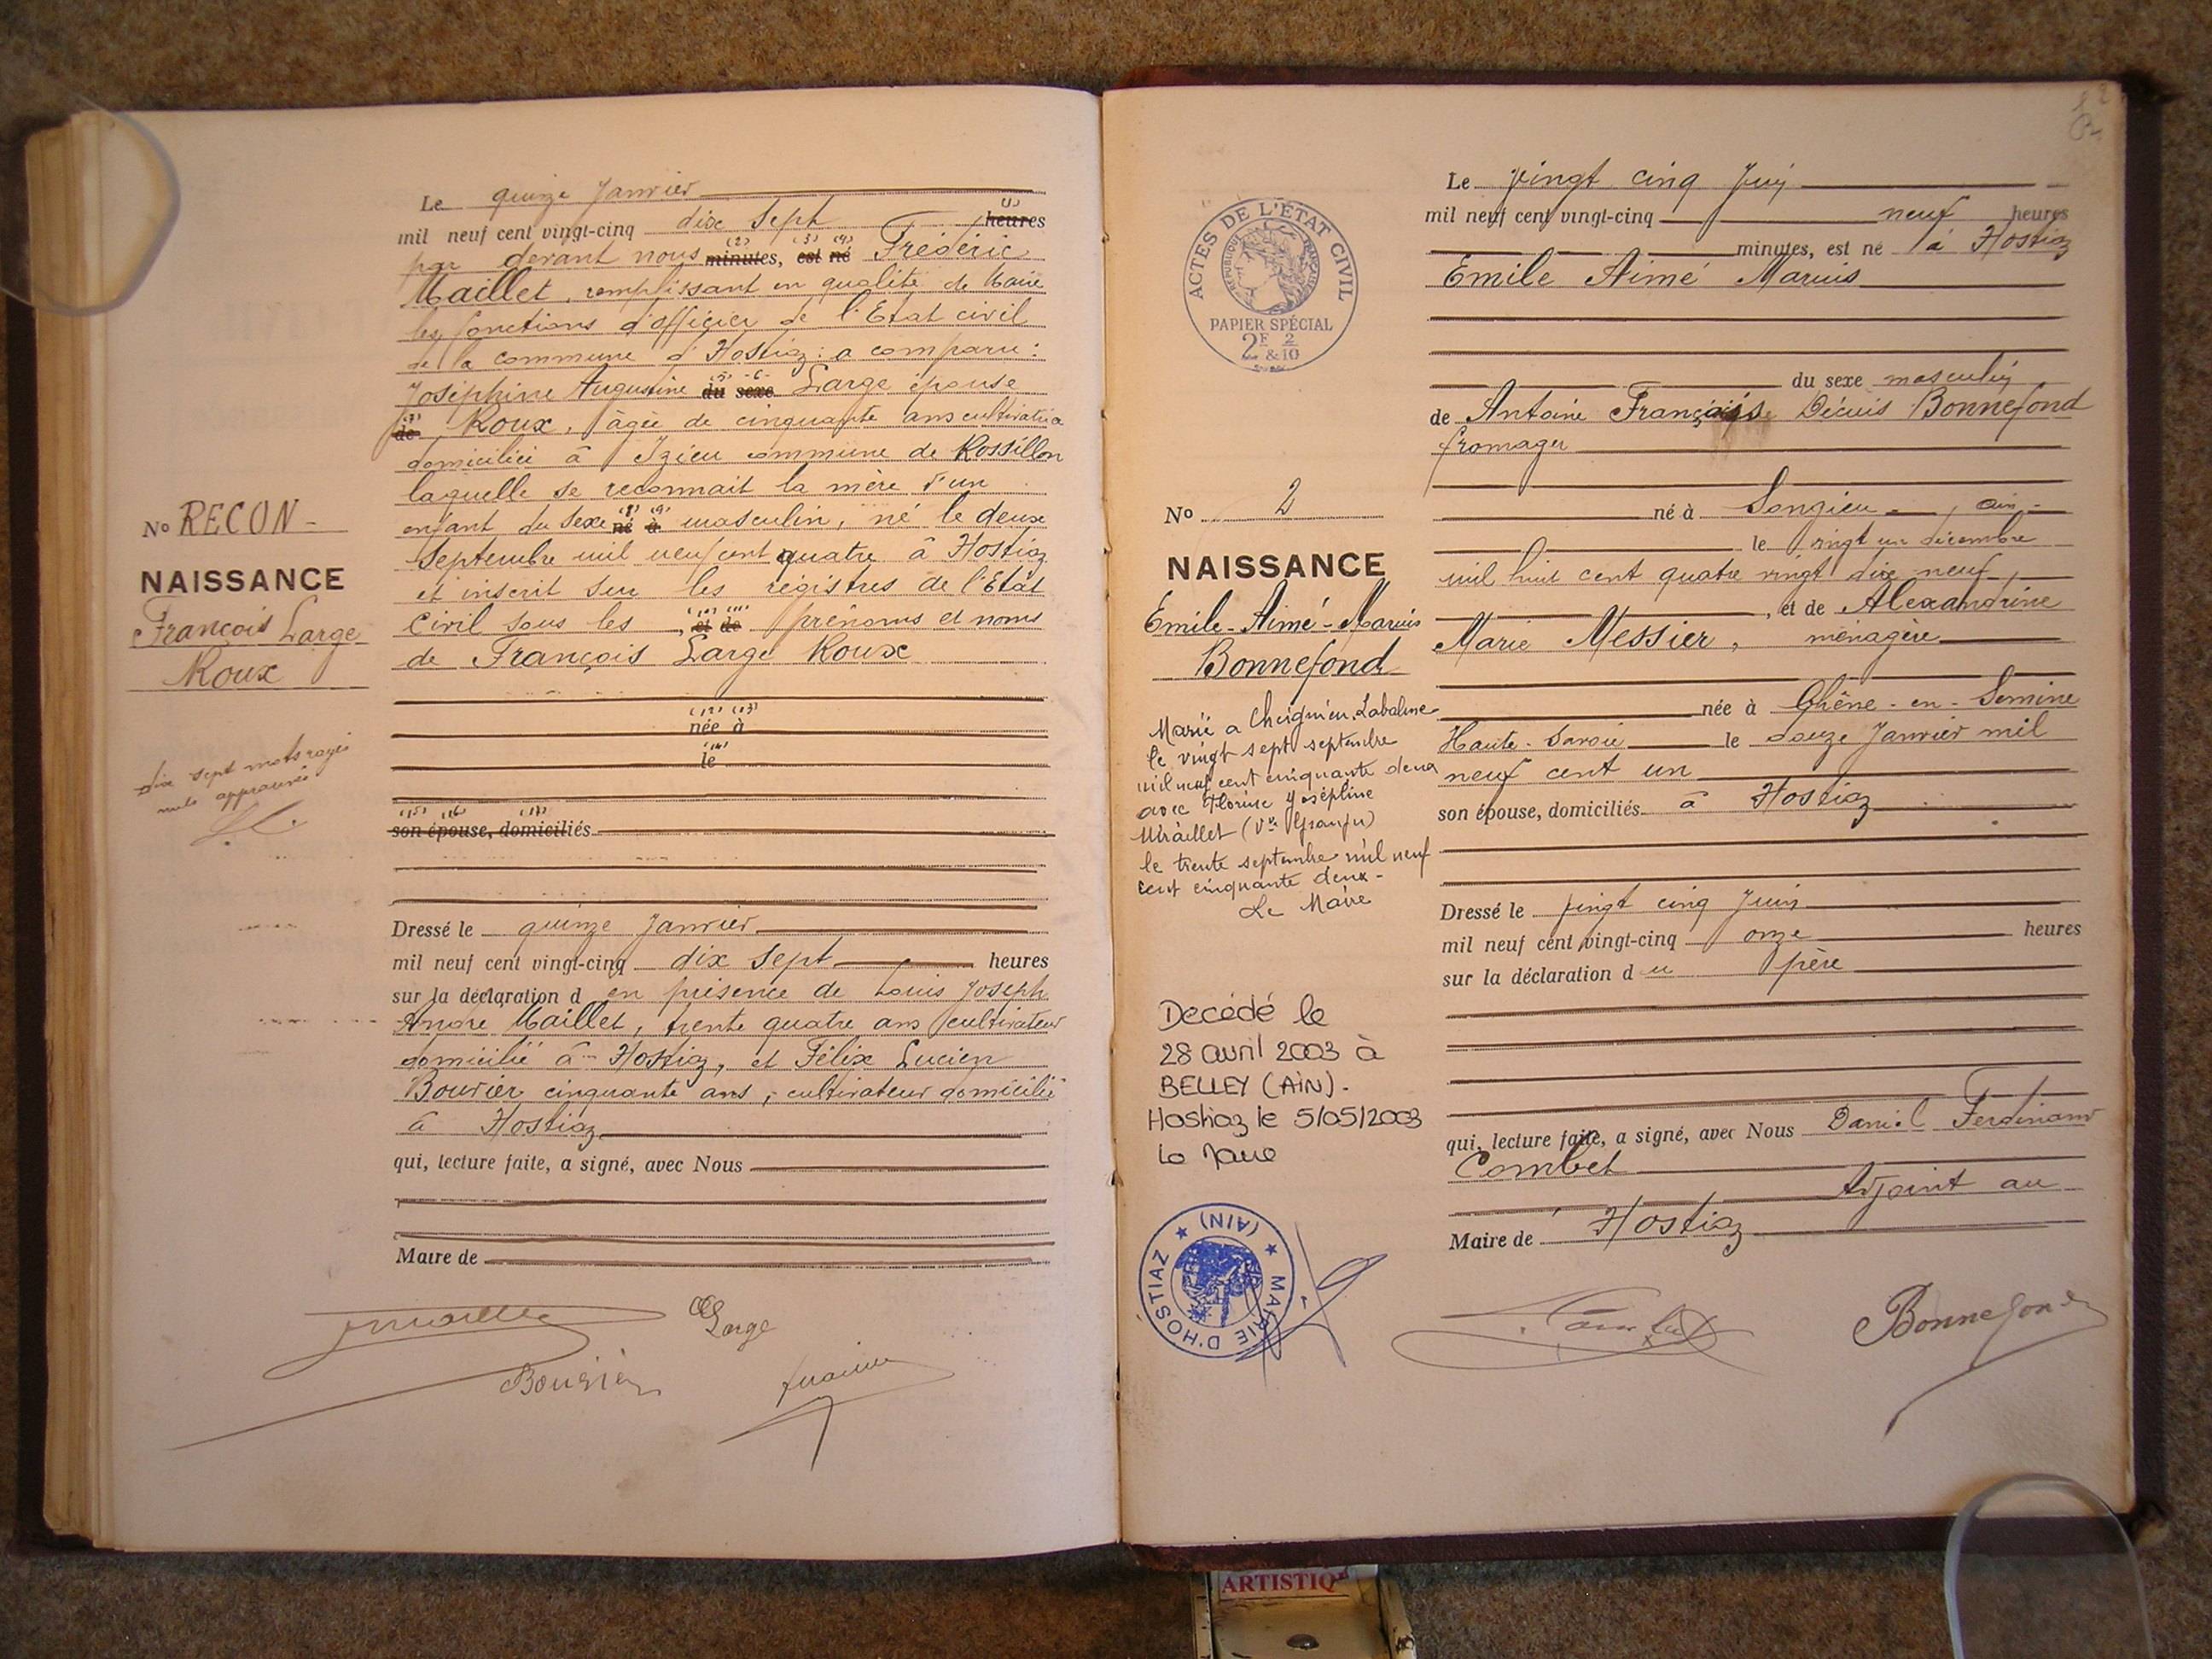 Le quinze Janvier
mil neuf cent vingt-cinq dix sept heures
par devant nous minutes, est né Frédéric
Maillet, remplissant en qualité de Maire
les fonctions d'officier de l'Etat civil
de la commune d'Hostiaz : a comparu :
Joséphine Augustine du sexe Large épouse
de Roux, âgée de cinquante ans cultivatrice
domiciliée à Izieu commune de Rossillon
laquelle se reconnait la mère d'un
enfant du sexe né à masculin, né le deux
Septembre mil neuf cent quatre à Hostiaz
et inscrit sur les registres de l'Etat
Civil sous les , et de prénoms et noms
de François Large Roux
née à
le
son épouse, domiciliés
Dressé le quinze Janvier
mil neuf cent vingt-cinq dix sept heures
sur la déclaration d en présence de Louis Joseph
André Maillet, trente quatre ans cultivateur
domicilié à Hostiaz, et Félix Lucien
Bouvier cinquante ans, cultivateur domicilié
à Hostiaz
qui, lecture faite, a signé, avec Nous
Maire de
Large
Bouvier
No RECON-
NAISSANCE
François Large
Roux
dix sept mots rayés
nuls approuvés
Le vingt cinq Juin
mil neuf cent vingt-cinq neuf heures
minutes, est né à Hostiaz
Emile Aimé Marius
du sexe masculin
de Antoine François Décuis Bonnefond
fromager
né à Songieu, ain
le vingt un décembre
mil huit cent quatre vingt dix neuf,
, et de Alexandrine
Marie Messier, ménagère
née à Chêne-en-Semine
Haute-Savoie le douze Janvier mil
neuf cent un
son épouse, domiciliés à Hostiaz
Dressé le vingt cinq Juin
mil neuf cent vingt-cinq onze heures
sur la déclaration du père
qui, lecture faite, a signé, avec Nous Daniel Ferdinand
Combet
Adjoint au
Maire de Hostiaz
Combet
Bonnefond
ACTES DE L'ÉTAT CIVIL
RÉPUBLIQUE FRANÇAISE
PAPIER SPÉCIAL
2F 2
& 10
No 2
NAISSANCE
Emile-Aimé-Marius
Bonnefond
Marié a Cheignieu-Labalme
le vingt sept septembre
mil neuf cent cinquante deux
avec Florine Joséphine
Miraillet
le trente septembre mil neuf
cent cinquante deux-
Le Maire
Decédé le
28 avril 2003 à
BELLEY (AIN).
Hostiaz le 5/05/2003
MAIRIE D'HOSTIAZ ★ (AIN) ★
ARTISTIQ